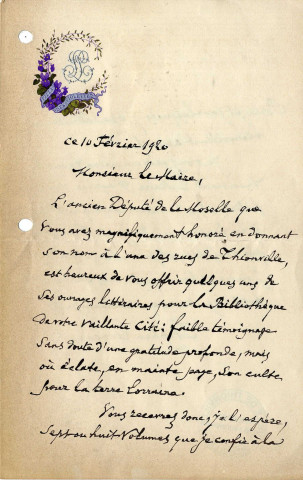 ce 10 Février 1920
Monsieur le Maire,
L'ancien Député de la Moselle que
vous avez magnifiquement honoré en donnant
son nom à l'une des rues de Thionville,
est heureux de vous offrir quelques uns de
ses ouvrages littéraires pour la Bibliothèque
de votre vaillante Cité: faible témoignage
sans doute d'une gratitude profonde, mais
où éclate, en mainte page, son culte
pour la terre Lorraine.
Vous recevrez donc, je l'espère,
sept ou huit volumes que je confie à la